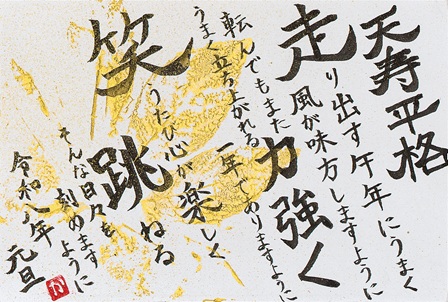 天寿平格
走り出す午年にうまく
風が味方しますように
転んでもまた力強く
うまく立ち上がれる一年でありますように
笑うたび心が楽しく
跳ねる
そんな日々を刻めますように
令和八年 元旦
か